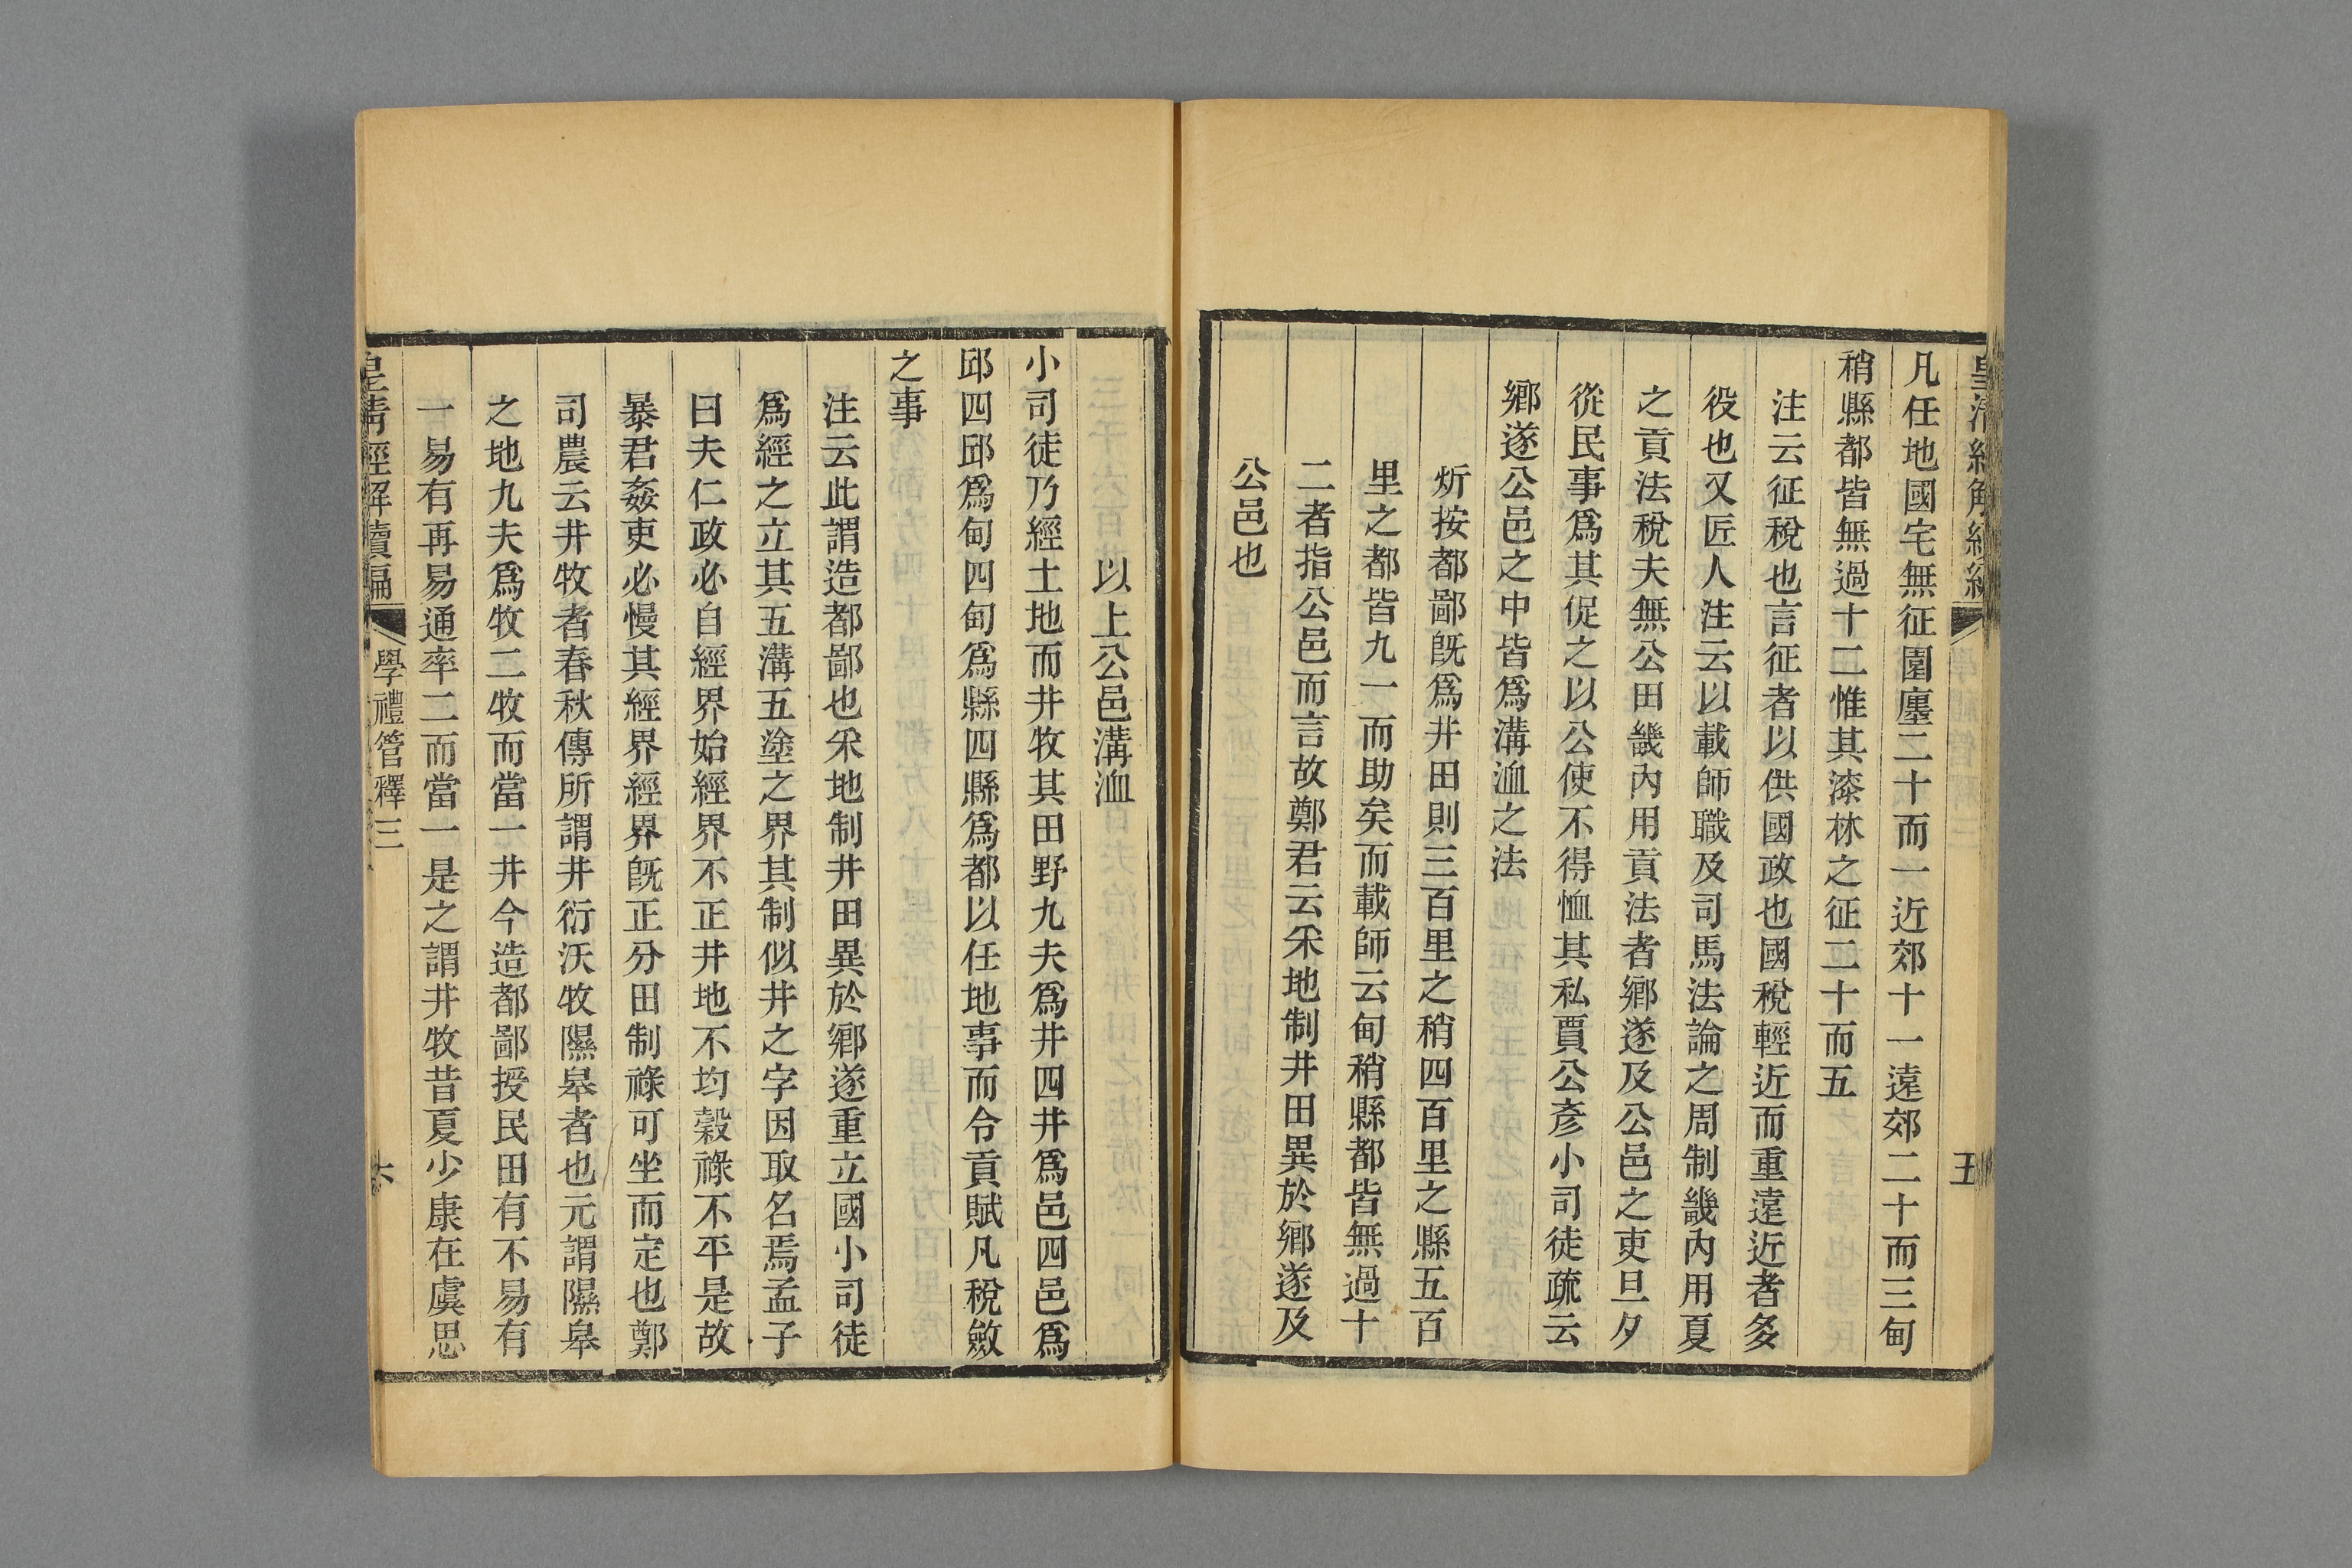 凡任地國宅無征園廛二十而一近郊十一遠郊二十而三甸
稍縣都皆無過十二惟其漆林之征二十而五
注云征稅也言征者以供國政也國稅輕近而重遠近者多
役也又匠人注云以載師職及司馬法論之周制畿內用夏
之貢法稅夫無公田畿內用貢法者鄉遂及公邑之吏旦夕
從民事爲其促之以公使不得恤其私賈公彥小司徒疏云
鄉遂公邑之中皆爲溝洫之法
炘按都鄙旣爲井田則三百里之稍四百里之縣五百
里之都皆九一而助矣而載師云甸稍縣都皆無過十
二者指公邑而言故鄭君云采地制井田異於鄉遂及
公邑也
五
以上公邑溝洫
小司徒乃經土地而井牧其田野九夫爲井四井爲邑四邑爲
邱四邱爲甸四甸爲縣四縣爲都以任地事而令貢賦凡稅斂
之事
注云此謂造都鄙也采地制井田異於鄉遂重立國小司徒
爲經之立其五溝五塗之界其制似井之字因取名焉孟子
曰夫仁政必自經界始經界不正井地不均穀祿不平是故
暴君姦吏必慢其經界經界旣正分田制祿可坐而定也鄭
司農云井牧者春秋傳所謂井衍沃牧隰皋者也元謂隰皋
之地九夫爲牧二牧而當一井今造都鄙授民田有不易有
一易有再易通率二而當一是之謂井牧昔夏少康在虞思
皇清經解續編
學禮管釋三
六